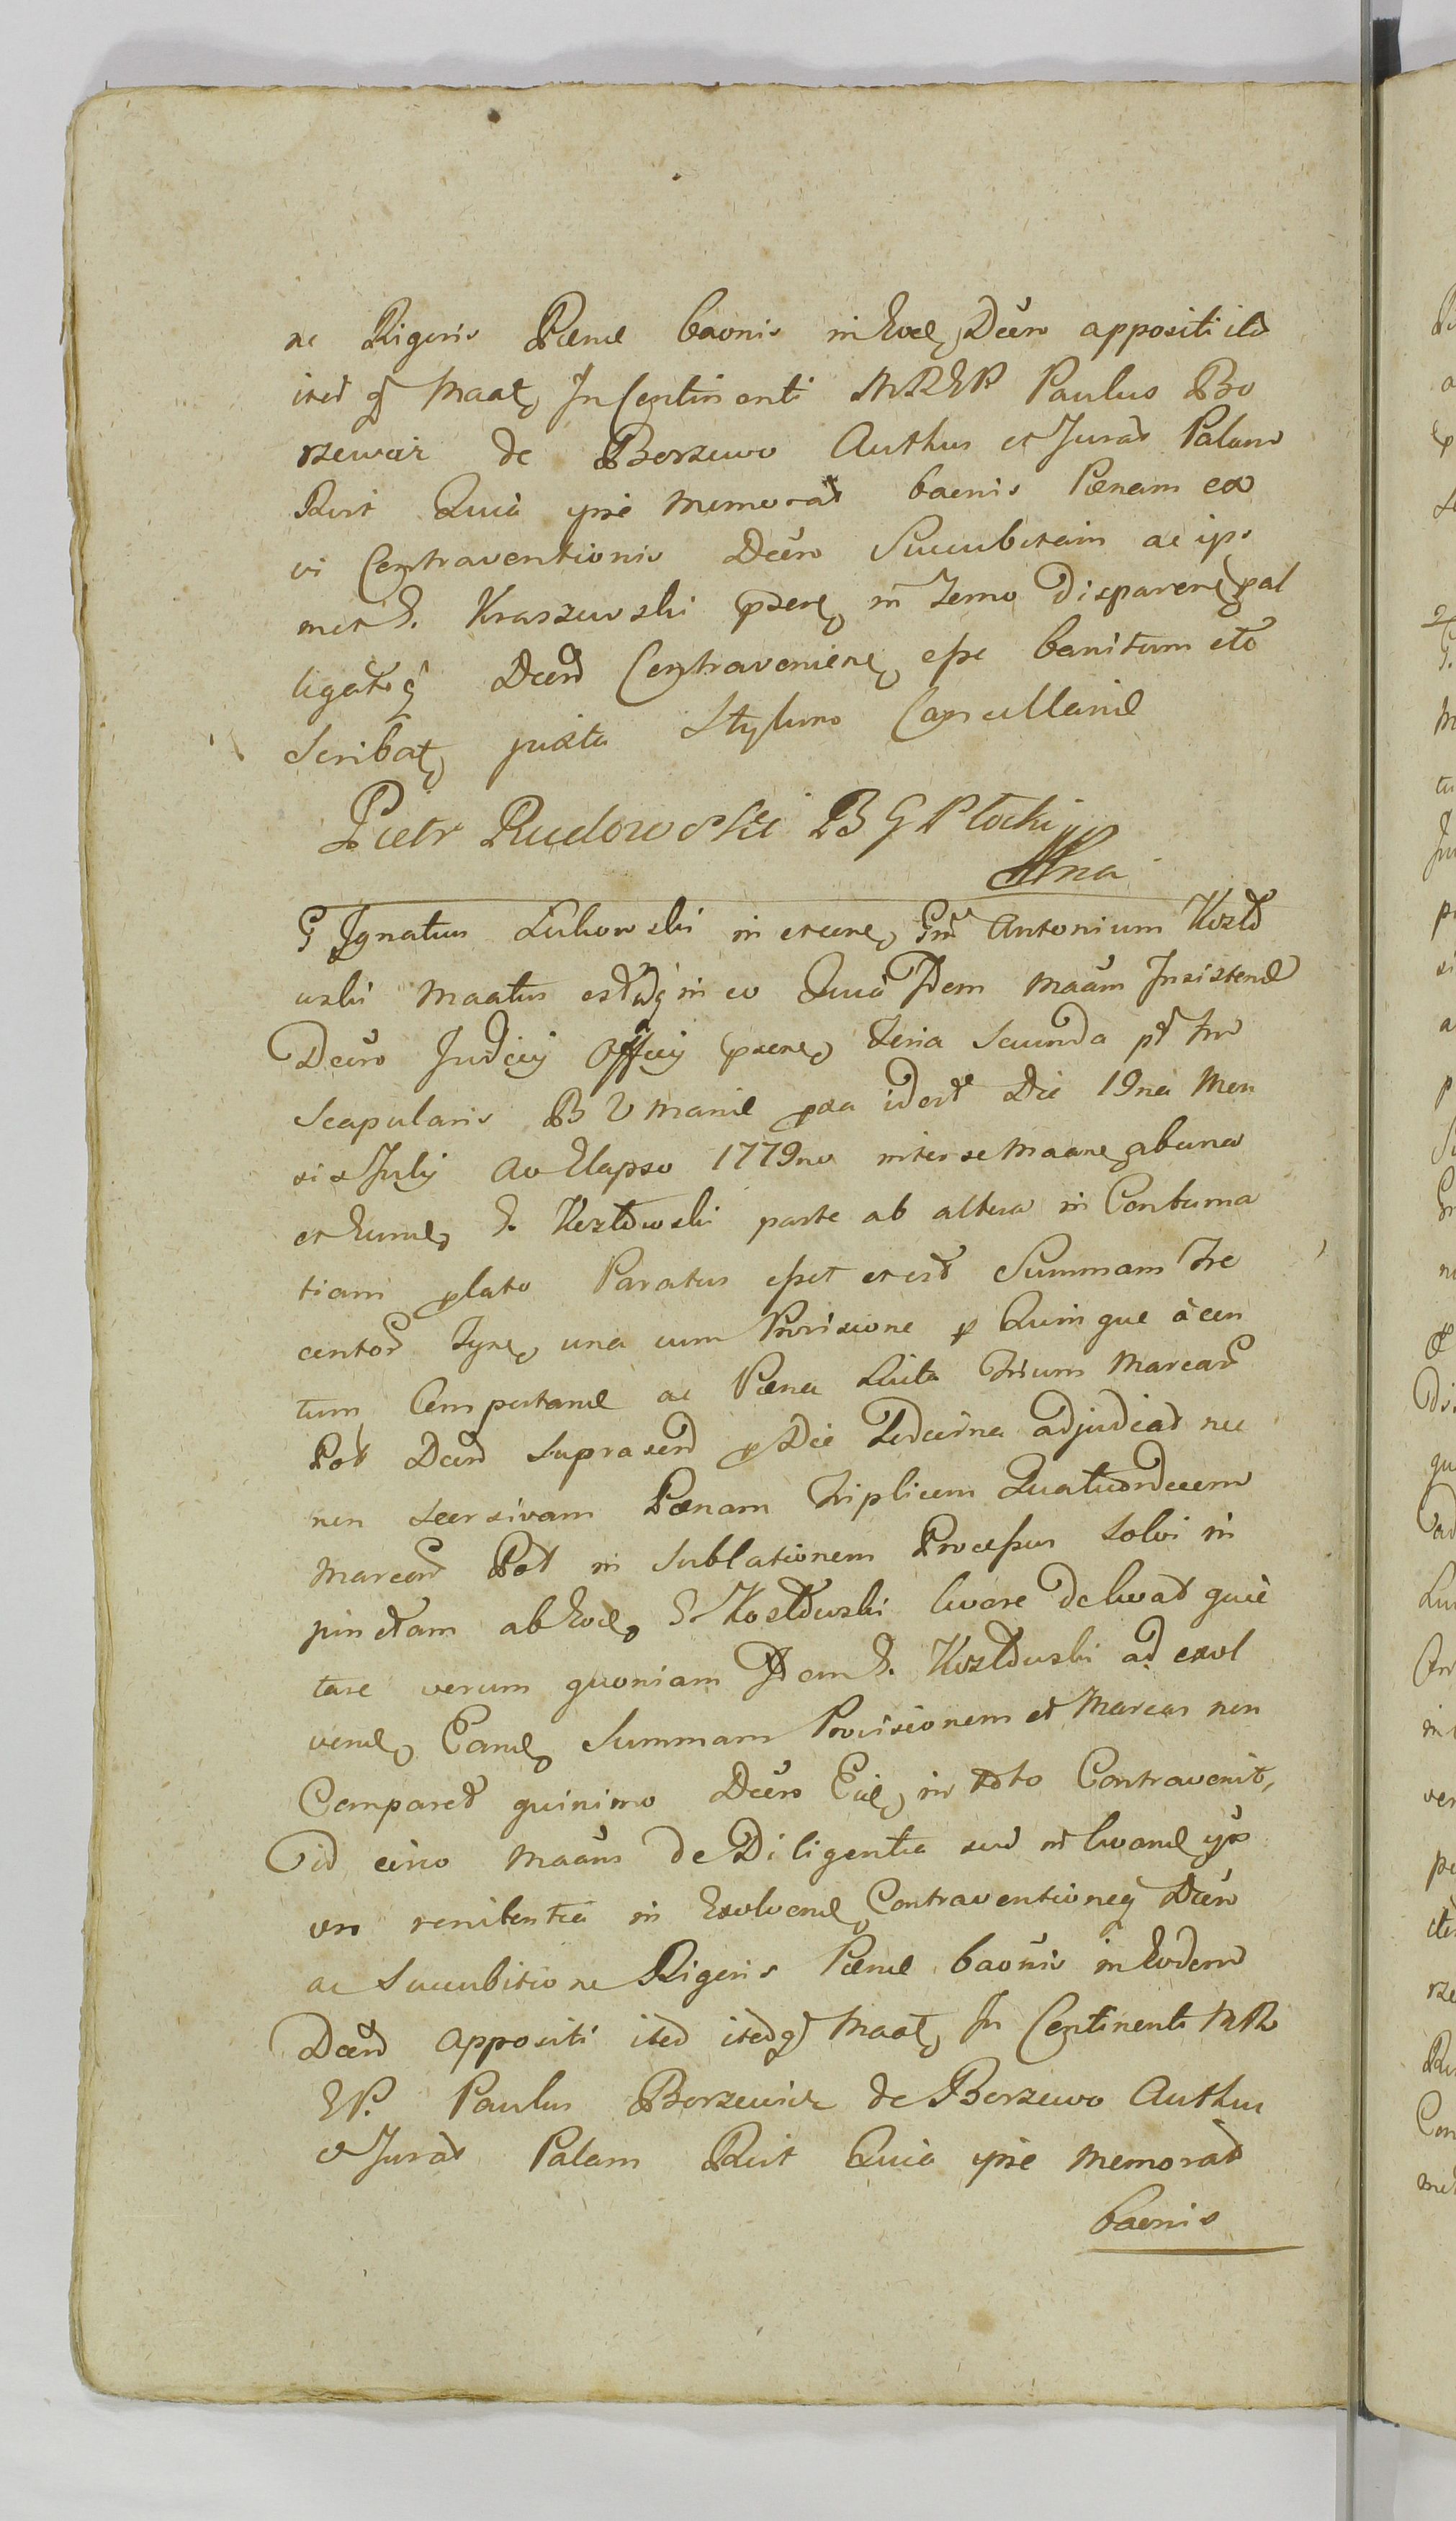 ne Rigoris Pænæ baonis in Eod Decro appositi ita
itaq Maat In Continenti MREP Paulus Bo
rzewicz de Borzewo Authus et Jurat Palam
Rect Quia ipse memorat baonis Pænam ex
vi Contraventionis Decro Succubitam ac ips
met G. Kraszewski in Termo Disparen pal
ligat Decro Contravenien esse banitum etc
Scribat juxta Stylum Cancellariæ
Pietr Rudowski B G Płocki
mna
G Ignatius Lukowski in Gm Antonium Kozło
wski Maatus est in eo Quia Idem Maam Insistend
Decro Judicy Officy feria Secunda pt fm
Scapularis B V Mariæ pxa idest Die 19na Men
sis July Ao Elapso 1779no inter se Maan ab una
et Eund G. Kozłowski parte ab altera in Contuma
tiam plato Paratus esset et est Summam Tre
centor Tynf una cum Provisione p Quinque a cen
tum Computand ac Pæna Luita Trium Marcar
Pol Decro Suprascrip adjudicat nec
non Pænam Triplicem Quatuordecem
Marcar Pol in Sublationem Processus Solvi in
punctam ab Eod G. Kozłowski levare de levat quie
tare verum quoniam Idem G. Kozłowski ad exol
vend Eand Summam Provisionem et Marcas non
Comparet quinimo Decro Eid in toto Contravenit,
id circo Maans de Diligentia sua in levand
vro renitentia in Exolvend Contraventioneq Decro
ac Succubitione Rigoris Pænæ baonis in Eodem
Decro appositi ita itaq Maat In Continenti MR
EP. Paulus Borzewicz de Borzewo Authus
et Jurat Palam Rect Quia ipse memorat
baonis